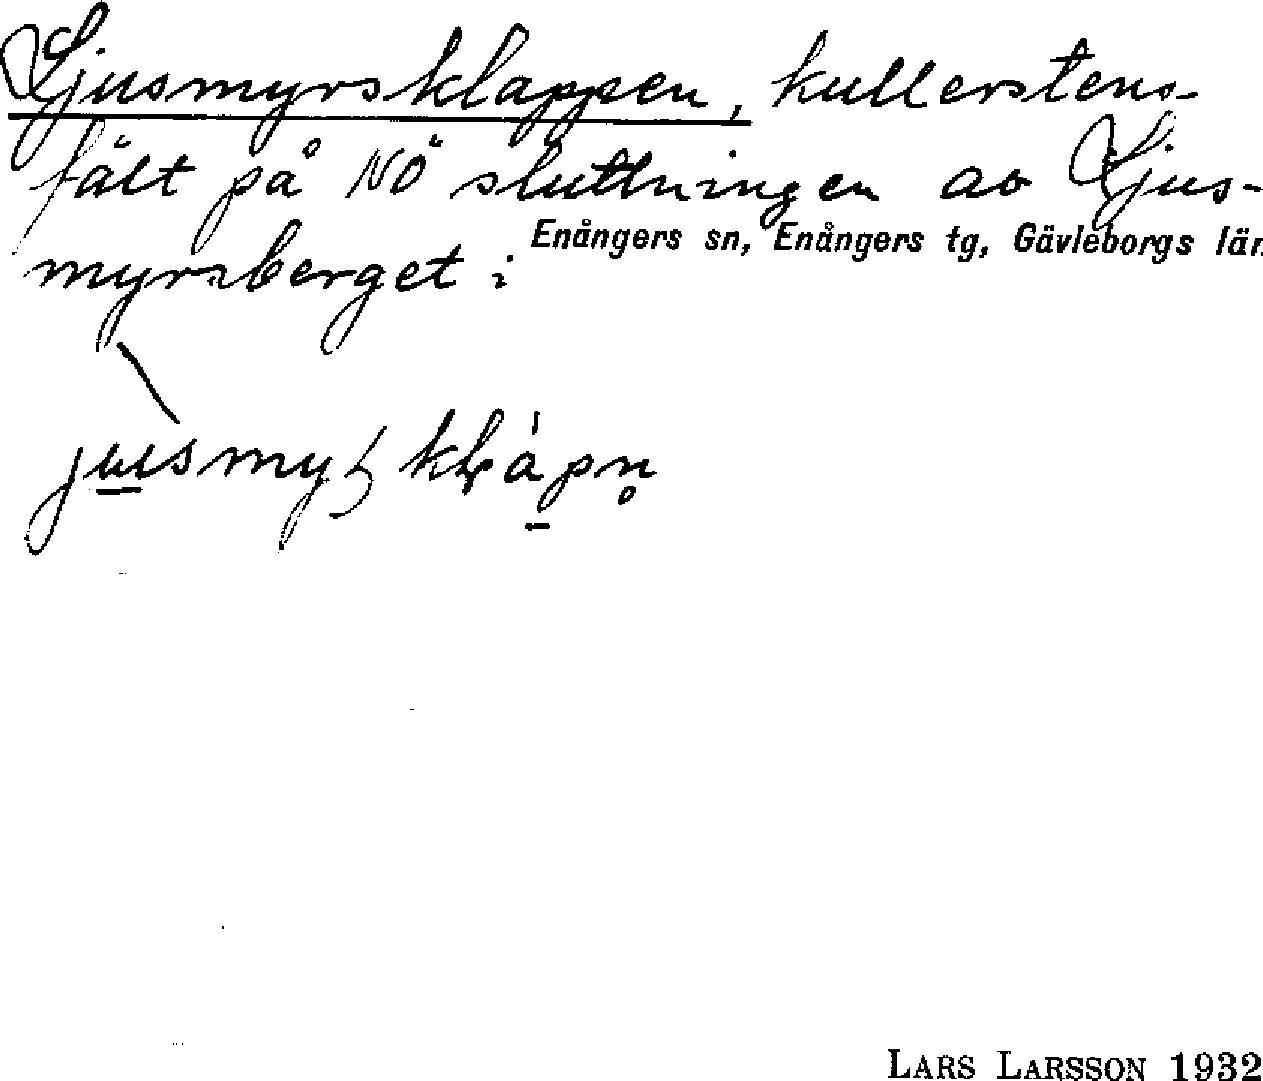 Ljusmyrsklappen, kullerstens-
fält på NÖ sluttningen av Ljus-
Enångers sn, Enångers tg, Gävleborgs län
myrsberget i
LARS LARSSON 1932